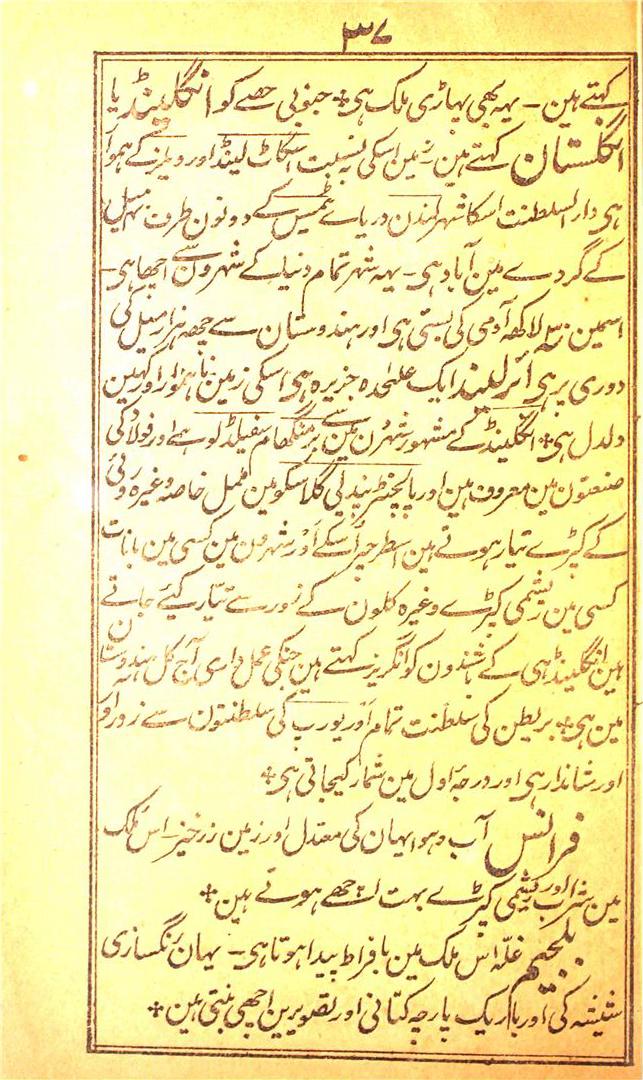 ۳۷
کہتے ہین - یہہ بھی پہاڑی ملک ہی + جنوبی حصے کو انگلینڈ یا
انگلستان کہتے ہین زمین اسکی بہ نسبت اسکاٹ لینڈ اور ویلز کے ہموار
ہی دارالسلطنت اسکا شہر لندن دریاے ٹمیس کے دونون طرف
کے گردے مین آباد ہی - یہہ شہر تمام دنیا کے شہرون سے اچھا ہی -
اسمین لاکھہ آدمی کی بستی ہی اور ہندوستان سے چھہ ہزار میل کی
دوری پر ہی ائرلینڈ ایک علٰحدہ جزیرہ ہی اسکی زمین ناہموار اور کہین
دلدل ہی + انگلینڈ کے مشہور شہرون مین سے برمنگھام سفیلڈ لوہے اور فولاد کی
صنعتون مین معروف ہین اور گلاسکو مین ململ خاصہ وغیرہ روئی
کے کپڑے تیار ہوتے ہین اسطرح اسکے اور شہرون مین کسی مین بانات
کسی مین ریشمی کپڑے وغیرہ کلون کے زور سے تیار کیئے جاتے
ہین انگلینڈ ہی کے باشندون کو انگریز کہتے ہین جنکی عملداری آج کل ہندوستان
مین ہی + بریطن کی سلطنت تمام اور یورپ کی سلطنتون سے زورآور
اور شاندار ہی اور درجۂ اول مین شمار کیجاتی ہی +
فرانس آب و ہوا یہان کی معتدل اور زمین زرخیز - اس ملک
مین شراب اور ریشمی کپڑے بہت اچھے ہوتے ہین +
بلجیم غلّہ اس ملک مین بافراط پیدا ہوتا ہی - یہان رنگسازی
شیشہ کی اور باریک پارچہ کتانی اور تصویرین اچھی بنتی ہین +